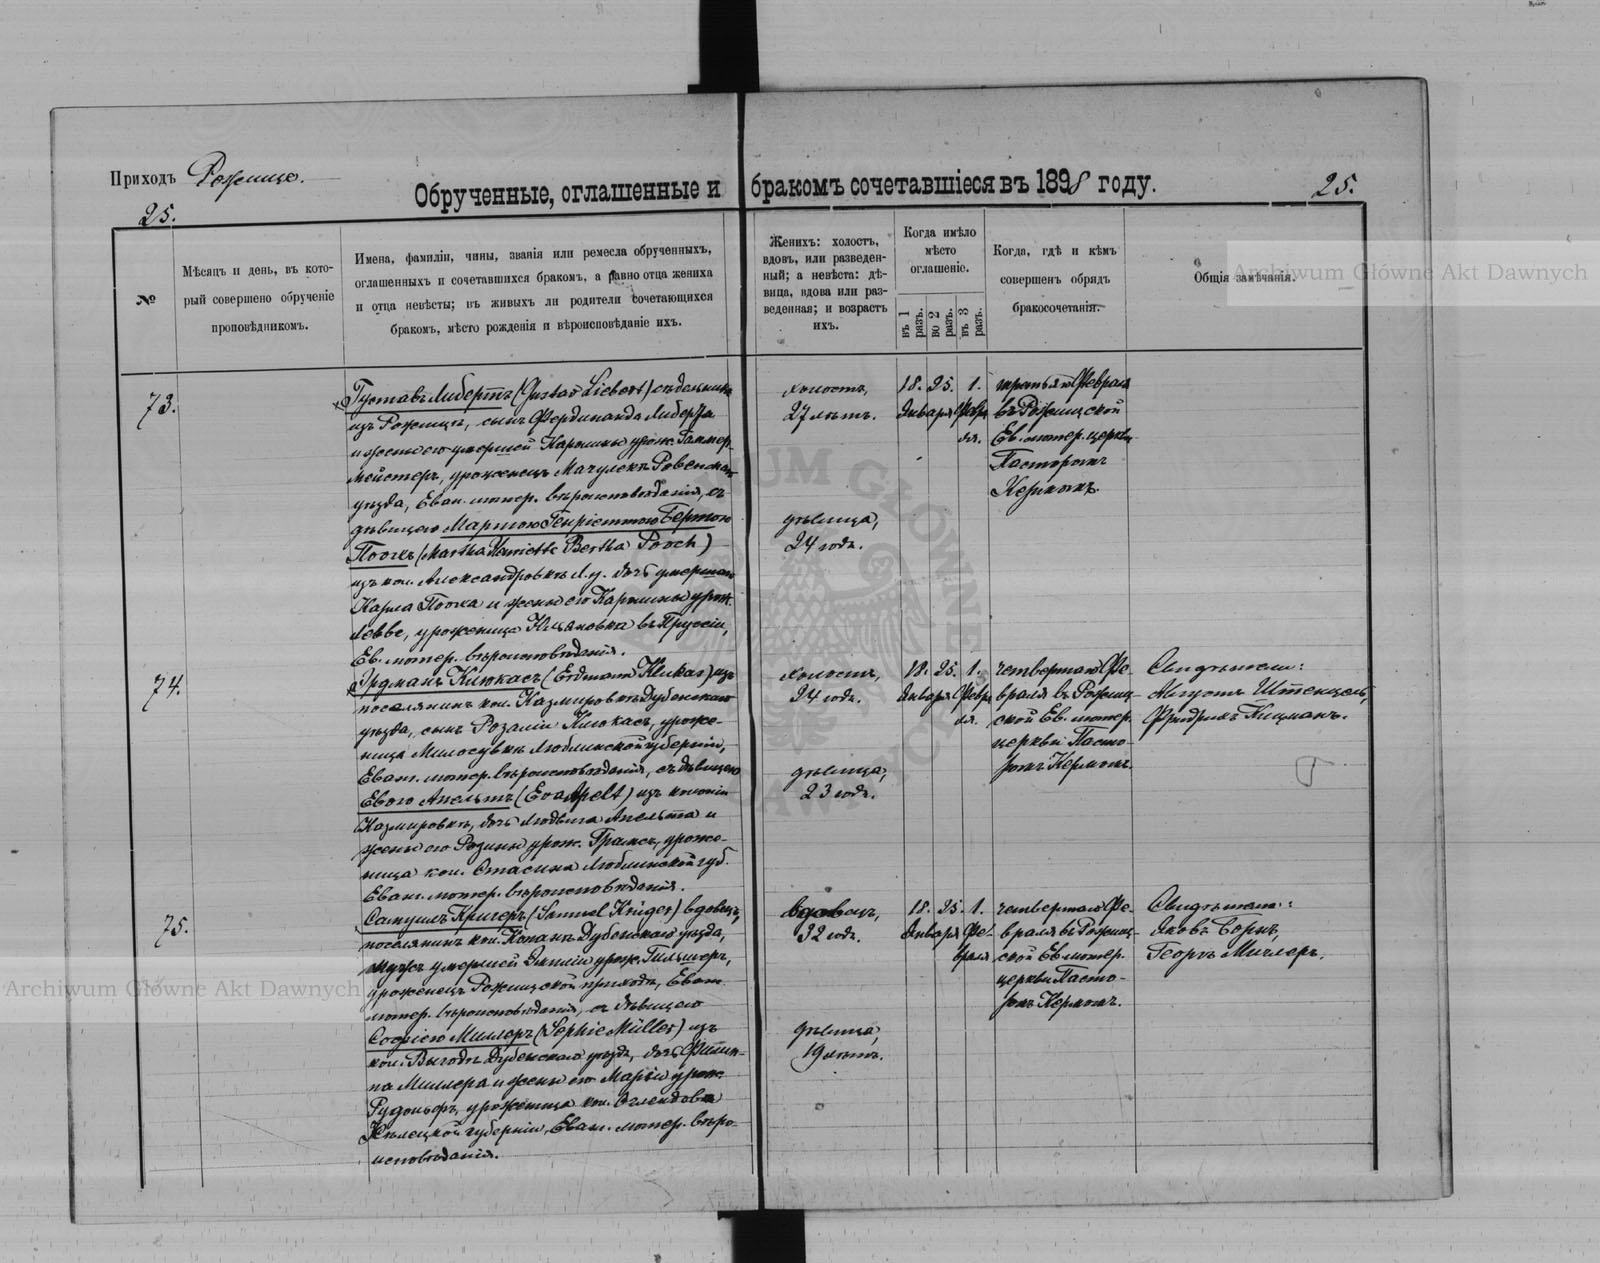 Приходъ Рожище.
Обрученные, оглашенные и бракомъ сочетавшіеся въ 1898 году.
25.
25.
№
Мѣсяцъ и день, въ кото-
рый совершено обрученіе
проповѣдникомъ.
Имена, фамиліи, чины, званія или ремесла обрученныхъ,
оглашенныхъ и сочетавшихся бракомъ, а равно отца жениха
и отца невѣсты; въ живыхъ ли родители сочетающихся
бракомъ, мѣсто рожденія и вѣроисповѣданіе ихъ.
Женихъ: холостъ,
вдовъ, или разведен-
ный; а невѣста: дѣ-
вица, вдова или раз-
веденная; и возрастъ
ихъ.
Когда имѣло
мѣсто
оглашеніе.
въ 1 разъ.
во 2 разъ.
въ 3 разъ.
Когда, гдѣ и кѣмъ
совершенъ обрядъ
бракосочетанія.
Общія замѣчанія.
73.
Густавъ Либертъ (Gustav Liebert)
изъ Рожищъ, сынъ Фердинанда Либерта
и жены его умершей Каролины урож. Гаммер-
мейстеръ, уроженецъ Мачулекъ Ровенскаго
уѣзда, Еван. лютер. вѣроисповѣданія, съ
дѣвицею Мартою Генріеттою Бертою
Поохъ (Martha Henriette Bertha Pooch)
изъ кол. Александровки Л. у. дочь умершаго
Карла Пооха и жены его Каролины урож.
Левве, уроженица въ Пруссіи,
Ев. лютер. вѣроисповѣданія.
холостъ,
27 лѣтъ.
дѣвица,
24 года.
18. 25. 1.
Января Февра
ля.
третьяго Февраля
въ Рожищской
Ев. лютер. церкви
Пасторомъ
Кермомъ.
74.
Эрдманъ Клюкасъ (Erdmann Klukas) изъ
поселянинъ кол. Казмировки Дубенскаго
уѣзда, сынъ Розаліи Клюкасъ, уроже-
нецъ Милосувки Люблинской губерніи,
Еван. лютер. вѣроисповѣданія, съ дѣвицею
Евою Апельтъ (Eva Apelt) изъ колоніи
Казмировки, дочь Людвига Апельта и
жены его Розины урож. Грамсъ, уроже-
ница кол. Стасина Люблинской губ.
Еван. лютер. вѣроисповѣданія.
холостъ,
24 года.
дѣвица,
23 года.
18. 25. 1.
Января Февра
ля.
четвертаго Фе-
враля въ Рожищ-
ской Ев. лютер.
церкви Пасто-
ромъ Кермомъ.
Свидѣтели:
Августъ Штенцель,
Фридрихъ Кицманъ.
75.
Самуилъ Кригеръ (Samuel Krüger) вдовецъ,
поселянинъ кол. Копань Дубенскаго уѣзда,
мужъ умершей Эмиліи урож. Гильшеръ,
уроженецъ Рожищской прихода, Еван.
лютер. вѣроисповѣданія, съ дѣвицею
Софіею Миллеръ (Sophie Müller) изъ
кол. Выгода Дубенскаго уѣзда, дочь Филип-
па Миллера и жены его Маріи урож.
Рудольфъ, уроженица кол.
Кѣлецкой губерніи, Еван. лютер. вѣро-
исповѣданія.
вдовецъ,
32 года.
дѣвица,
19 лѣтъ.
18. 25. 1.
Января Фе-
враля
четвертаго Фе-
враля въ Рожищ-
ской Ев. лютер.
церкви Пасто-
ромъ Кермомъ.
Свидѣтели:
Яковъ Борнъ,
Георгъ Миллеръ.
Archiwum Główne Akt Dawnych
Archiwum Główne Akt Dawnych